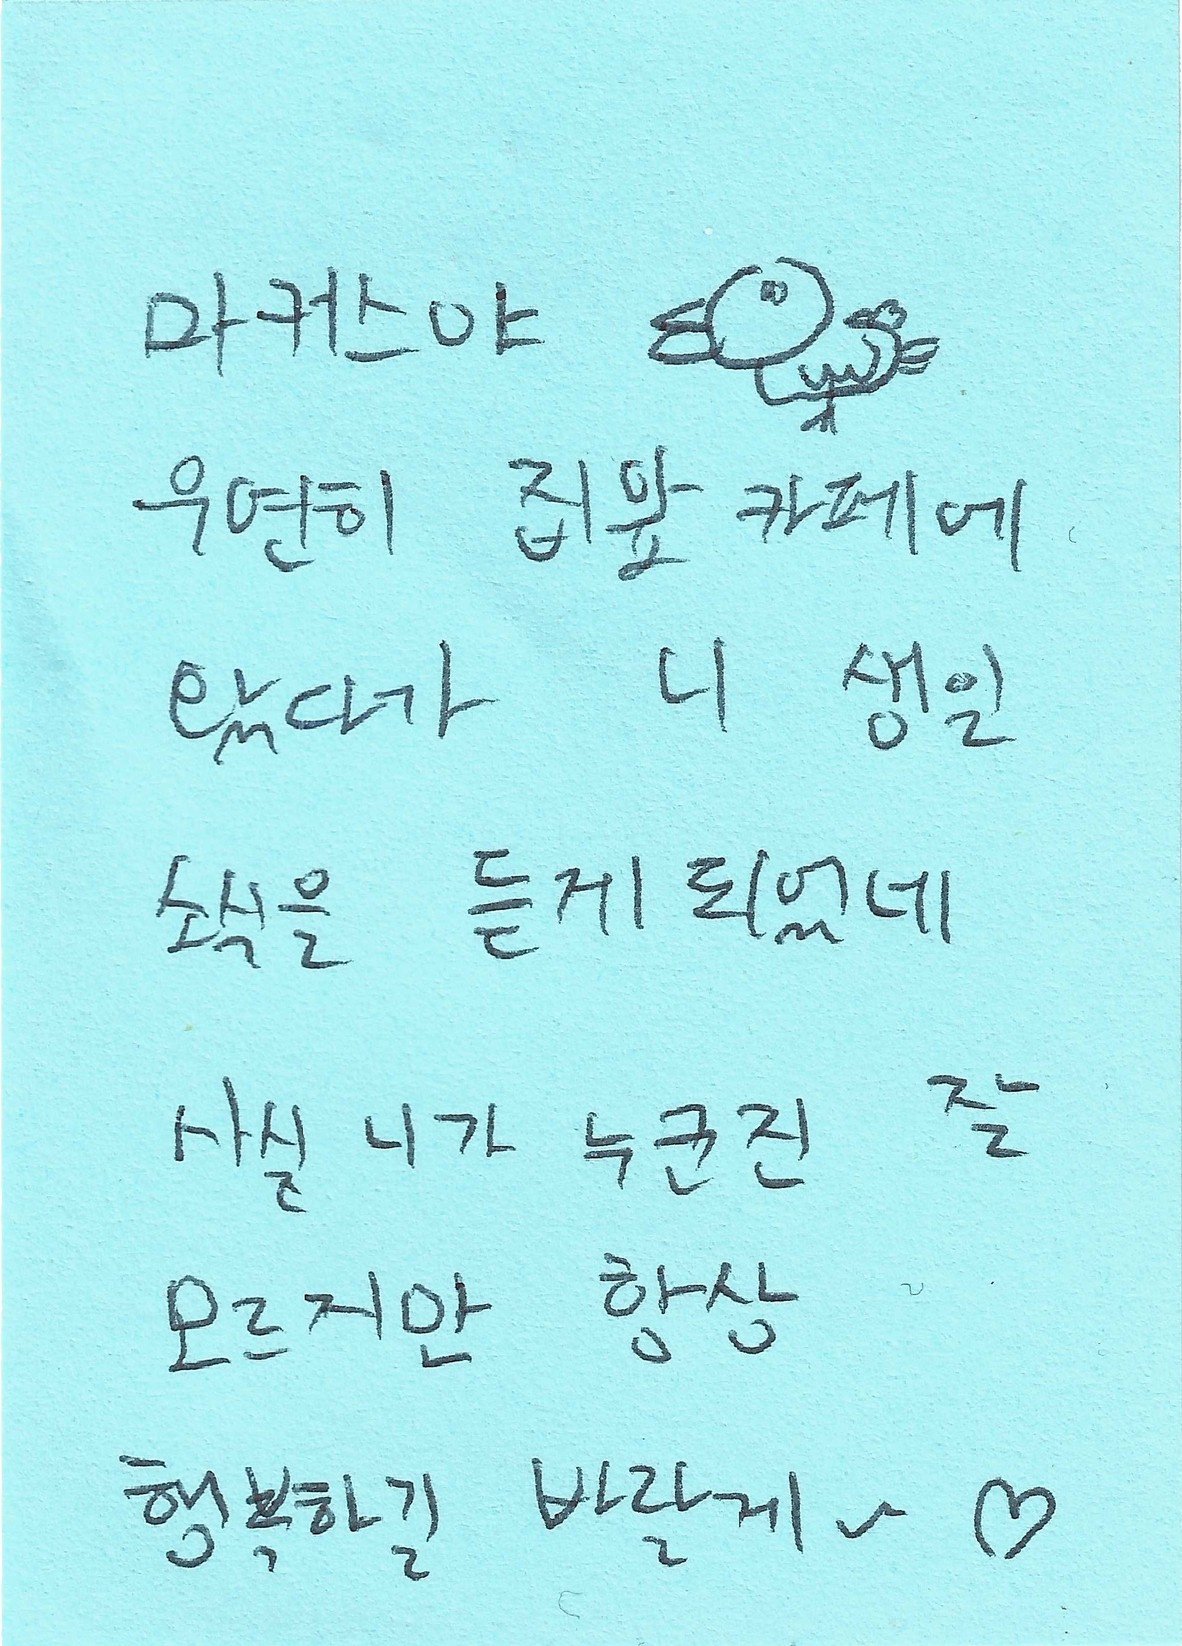 마커스야
우연히 집앞 카페에
왔다가 니 생일
소식을 듣게 되었네
사실 니가 누군진 잘
모르지만 항상
행복하길 바랄게~ ♡